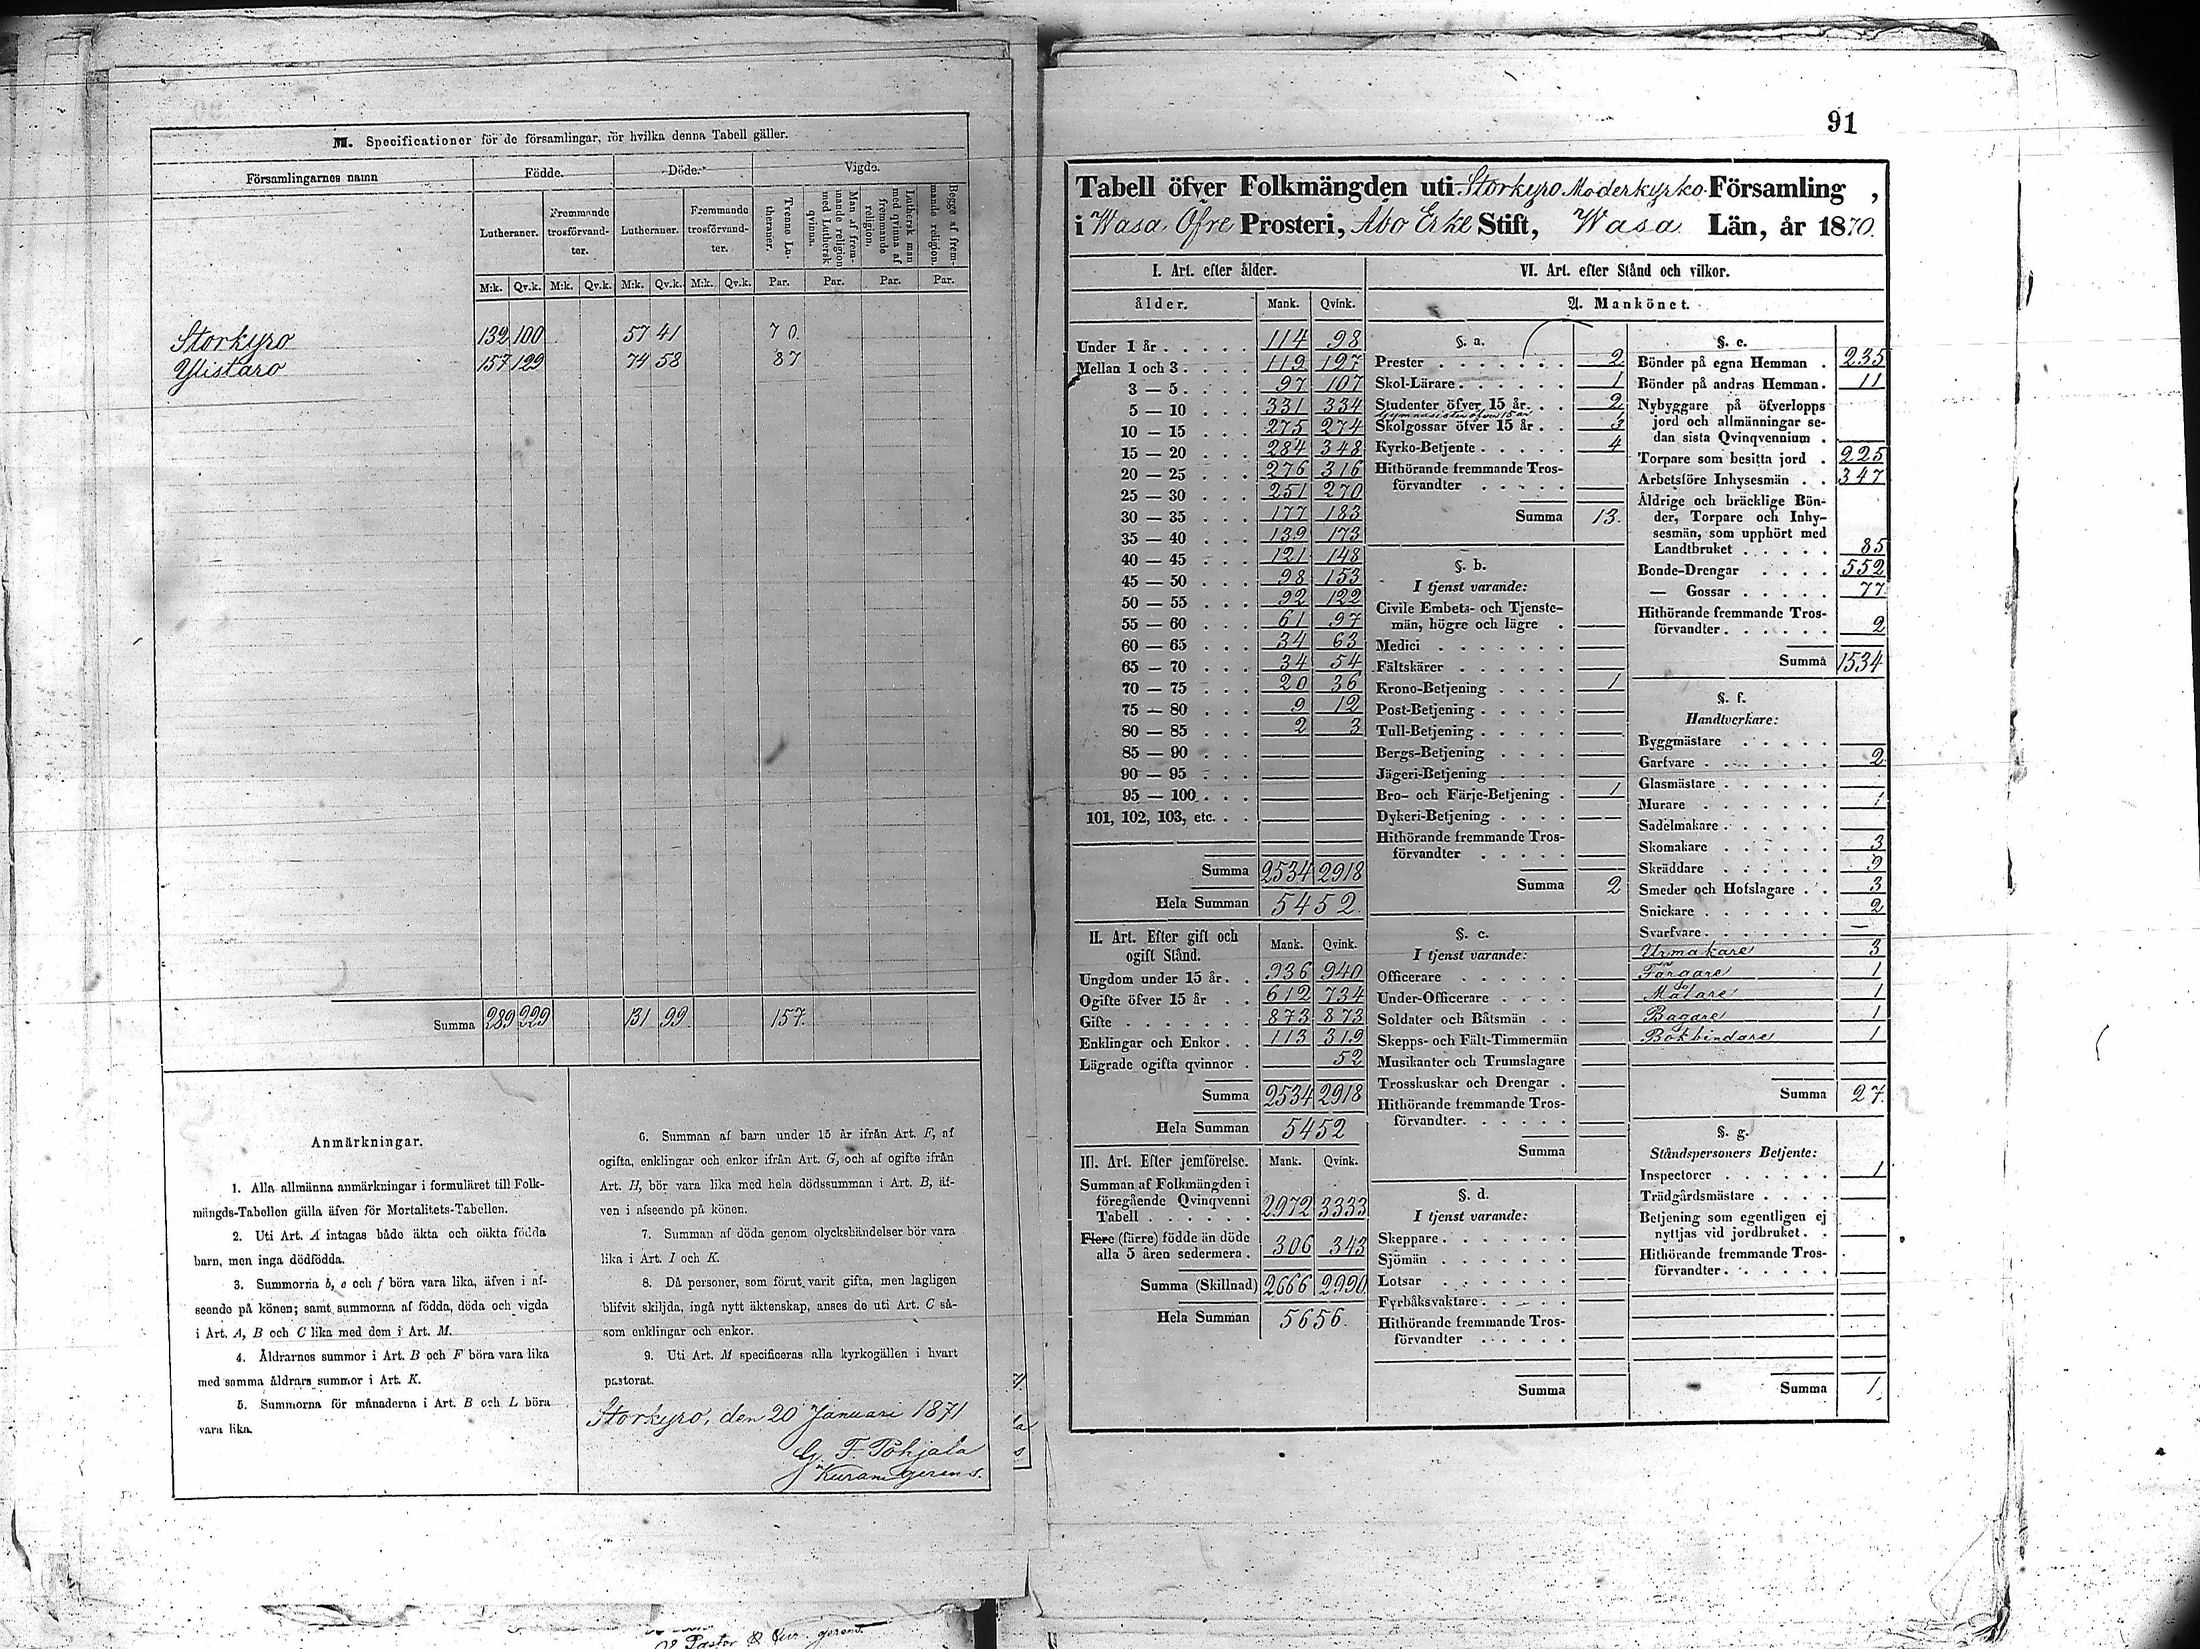 M. Specificationer för de församlingar, för hvilka denna Tabell gäller.
Församlingarnes namn | Födde. | Döde. | Vigde.
Lutheraner. | Fremmande trosförvandter. | Lutheraner. | Fremmande trosförvandter. | Trenne Lutheraner. | Man af fremmande religion med Luthersk qvinna. | Luthersk man med qvinna af fremmande religion. | Begge af fremmande religion.
M:k. | Qv.k. | M:k. | Qv.k. | M:k. | Qv.k. | M:k. | Qv.k. | Par. | Par. | Par. | Par.
Storkyro 132 100 57 41 70
Ylistaro 157 129 74 58 87
Summa 289 229 131 99 157.
Anmärkningar.
1. Alla allmänna anmärkningar i formuläret till Folk-
mängds-Tabellen gälla äfven för Mortalitets-Tabellen.
2. Uti Art. A intagas både äkta och oäkta födda
barn, men inga dödfödda.
3. Summorna b, e och f böra vara lika, äfven i af-
seende på könen; samt summorna af födda, döda och vigda
i Art. A, B och C lika med dem i Art. M.
4. Åldrarnes summor i Art. B och F böra vara lika
med samma åldrars summor i Art. K.
5. Summorna för månaderna i Art. B och L böra
vara lika.
6. Summan af barn under 15 år ifrån Art. F, af
ogifta, enklingar och enkor ifrån Art. G, och af ogifte ifrån
Art. H, bör vara lika med hela dödssumman i Art. B, äf-
ven i afseende på könen.
7. Summan af döda genom olyckshändelser bör vara
lika i Art. I och K.
8. Då personer, som förut varit gifta, men lagligen
blifvit skiljda, ingå nytt äktenskap, anses de uti Art. C så-
som enklingar och enkor.
9. Uti Art. M specificeras alla kyrkogällen i hvart
pastorat.
Storkyro, den 20 Januari 1871
G. F. Pohjala
91
Tabell öfver Folkmängden uti Storkyro Moderkyrko Församling,
i Wasa Öfre Prosteri, Åbo Erke Stift, Wasa Län, år 1870.
I. Art. efter ålder.
ålder. Mank. Qvink.
Under 1 år . . . 114 98
Mellan 1 och 3 . . . 119 127
3 — 5 . . . 97 107
5 — 10 . . . 331 334
10 — 15 . . . 275 274
15 — 20 . . . 284 348
20 — 25 . . . 276 316
25 — 30 . . . 251 270
30 — 35 . . . 177 183
35 — 40 . . . 139 173
40 — 45 . . . 121 148
45 — 50 . . . 98 153
50 — 55 . . . 92 122
55 — 60 . . . 61 97
60 — 65 . . . 34 63
65 — 70 . . . 34 54
70 — 75 . . . 20 36
75 — 80 . . . 9 12
80 — 85 . . . 2 3
85 — 90 . . .
90 — 95 . . .
95 — 100 . . .
101, 102, 103, etc. . .
Summa 2534 2918
Hela Summan 5452.
II. Art. Efter gift och
ogift Stånd. Mank. Qvink.
Ungdom under 15 år . . 936 940
Ogifte öfver 15 år . . 612 734
Gifte . . . 873 873
Enklingar och Enkor . . 113 319
Lägrade ogifta qvinnor . 52
Summa 2534 2918
Hela Summan 5452
III. Art. Efter jemförelse. Mank. Qvink.
Summan af Folkmängden i
föregående Qvinqvenni
Tabell . . . 2972 3333
Flere (färre) födde än döde
alla 5 åren sedermera . 306 343
Summa (Skillnad) 2666 2990
Hela Summan 5656.
VI. Art. efter Stånd och vilkor.
A. Mankönet.
§. a.
Prester . . . 2
Skol-Lärare . . . 1
Studenter öfver 15 år . . 2
Gymnasister öfver 15 år 1
Skolgossar öfver 15 år . . 3
Kyrko-Betjente . . . 4
Hithörande fremmande Tros-
förvandter . . .
Summa 13.
§. b.
I tjenst varande:
Civile Embets- och Tjenste-
män, högre och lägre .
Medici . . .
Fältskärer . . .
Krono-Betjening . . . 1
Post-Betjening . . .
Tull-Betjening . . .
Bergs-Betjening . . .
Jägeri-Betjening . . .
Bro- och Färje-Betjening . 1
Dykeri-Betjening . . .
Hithörande fremmande Tros-
förvandter . . .
Summa 2
§. c.
I tjenst varande:
Officerare . . .
Under-Officerare . . .
Soldater och Båtsmän . .
Skepps- och Fält-Timmermän
Musikanter och Trumslagare
Trosskuskar och Drengar .
Hithörande fremmande Tros-
förvandter. . . .
Summa
§. d.
I tjenst varande:
Skeppare . . .
Sjömän . . .
Lotsar . . .
Fyrbåksvaktare . . .
Hithörande fremmande Tros-
förvandter . . .
Summa
§. e.
Bönder på egna Hemman . 235
Bönder på andras Hemman . 11
Nybyggare på öfverlopps
jord och allmänningar se-
dan sista Qvinqvennium .
Torpare som besitta jord . 225
Arbetsföre Inhysesmän . . 347
Åldrige och bräcklige Bön-
der, Torpare och Inhy-
sesmän, som upphört med
Landtbruket . . . 85
Bonde-Drengar . . . 552
— Gossar . . . 77
Hithörande fremmande Tros-
förvandter . . . 2
Summa 1534
§. f.
Handtverkare:
Byggmästare . . .
Garfvare . . . 2
Glasmästare . . .
Murare . . . 1
Sadelmakare . . .
Skomakare . . . 3
Skräddare . . . 9
Smeder och Hofslagare . . 3
Snickare . . . 2
Svarfvare . . . —
Urmakare 3
Färgare 1
Målare 1
Bagare 1
Bokbindare 1
Summa 27.
§. g.
Ståndspersoners Betjente:
Inspectorer . . . 1
Trädgårdsmästare . . .
Betjening som egentligen ej
nyttjas vid jordbruket . .
Hithörande fremmande Tros-
förvandter . . .
Summa 1.